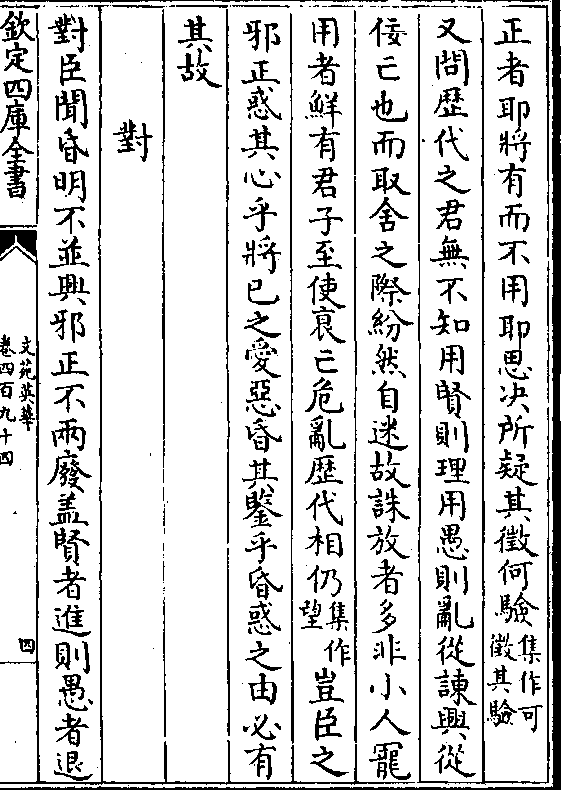 正者耶將有而不用耶思决所疑其徵何驗集作可徵其驗
又問歴代之君無不知用賢則理用愚則亂從諫興從
佞亡也而取舍之際紛然自迷故誅放者多非小人寵
用者鮮有君子至使衰亡危亂歴代相仍集作望豈臣之
邪正惑其心乎將已之愛惡昏其鑒乎昏惑之由必有
其故
對
對臣聞昏明不並興邪正不兩廢盖賢者進則愚者退
欽定四庫全書
文苑英華
卷四百九十四
四